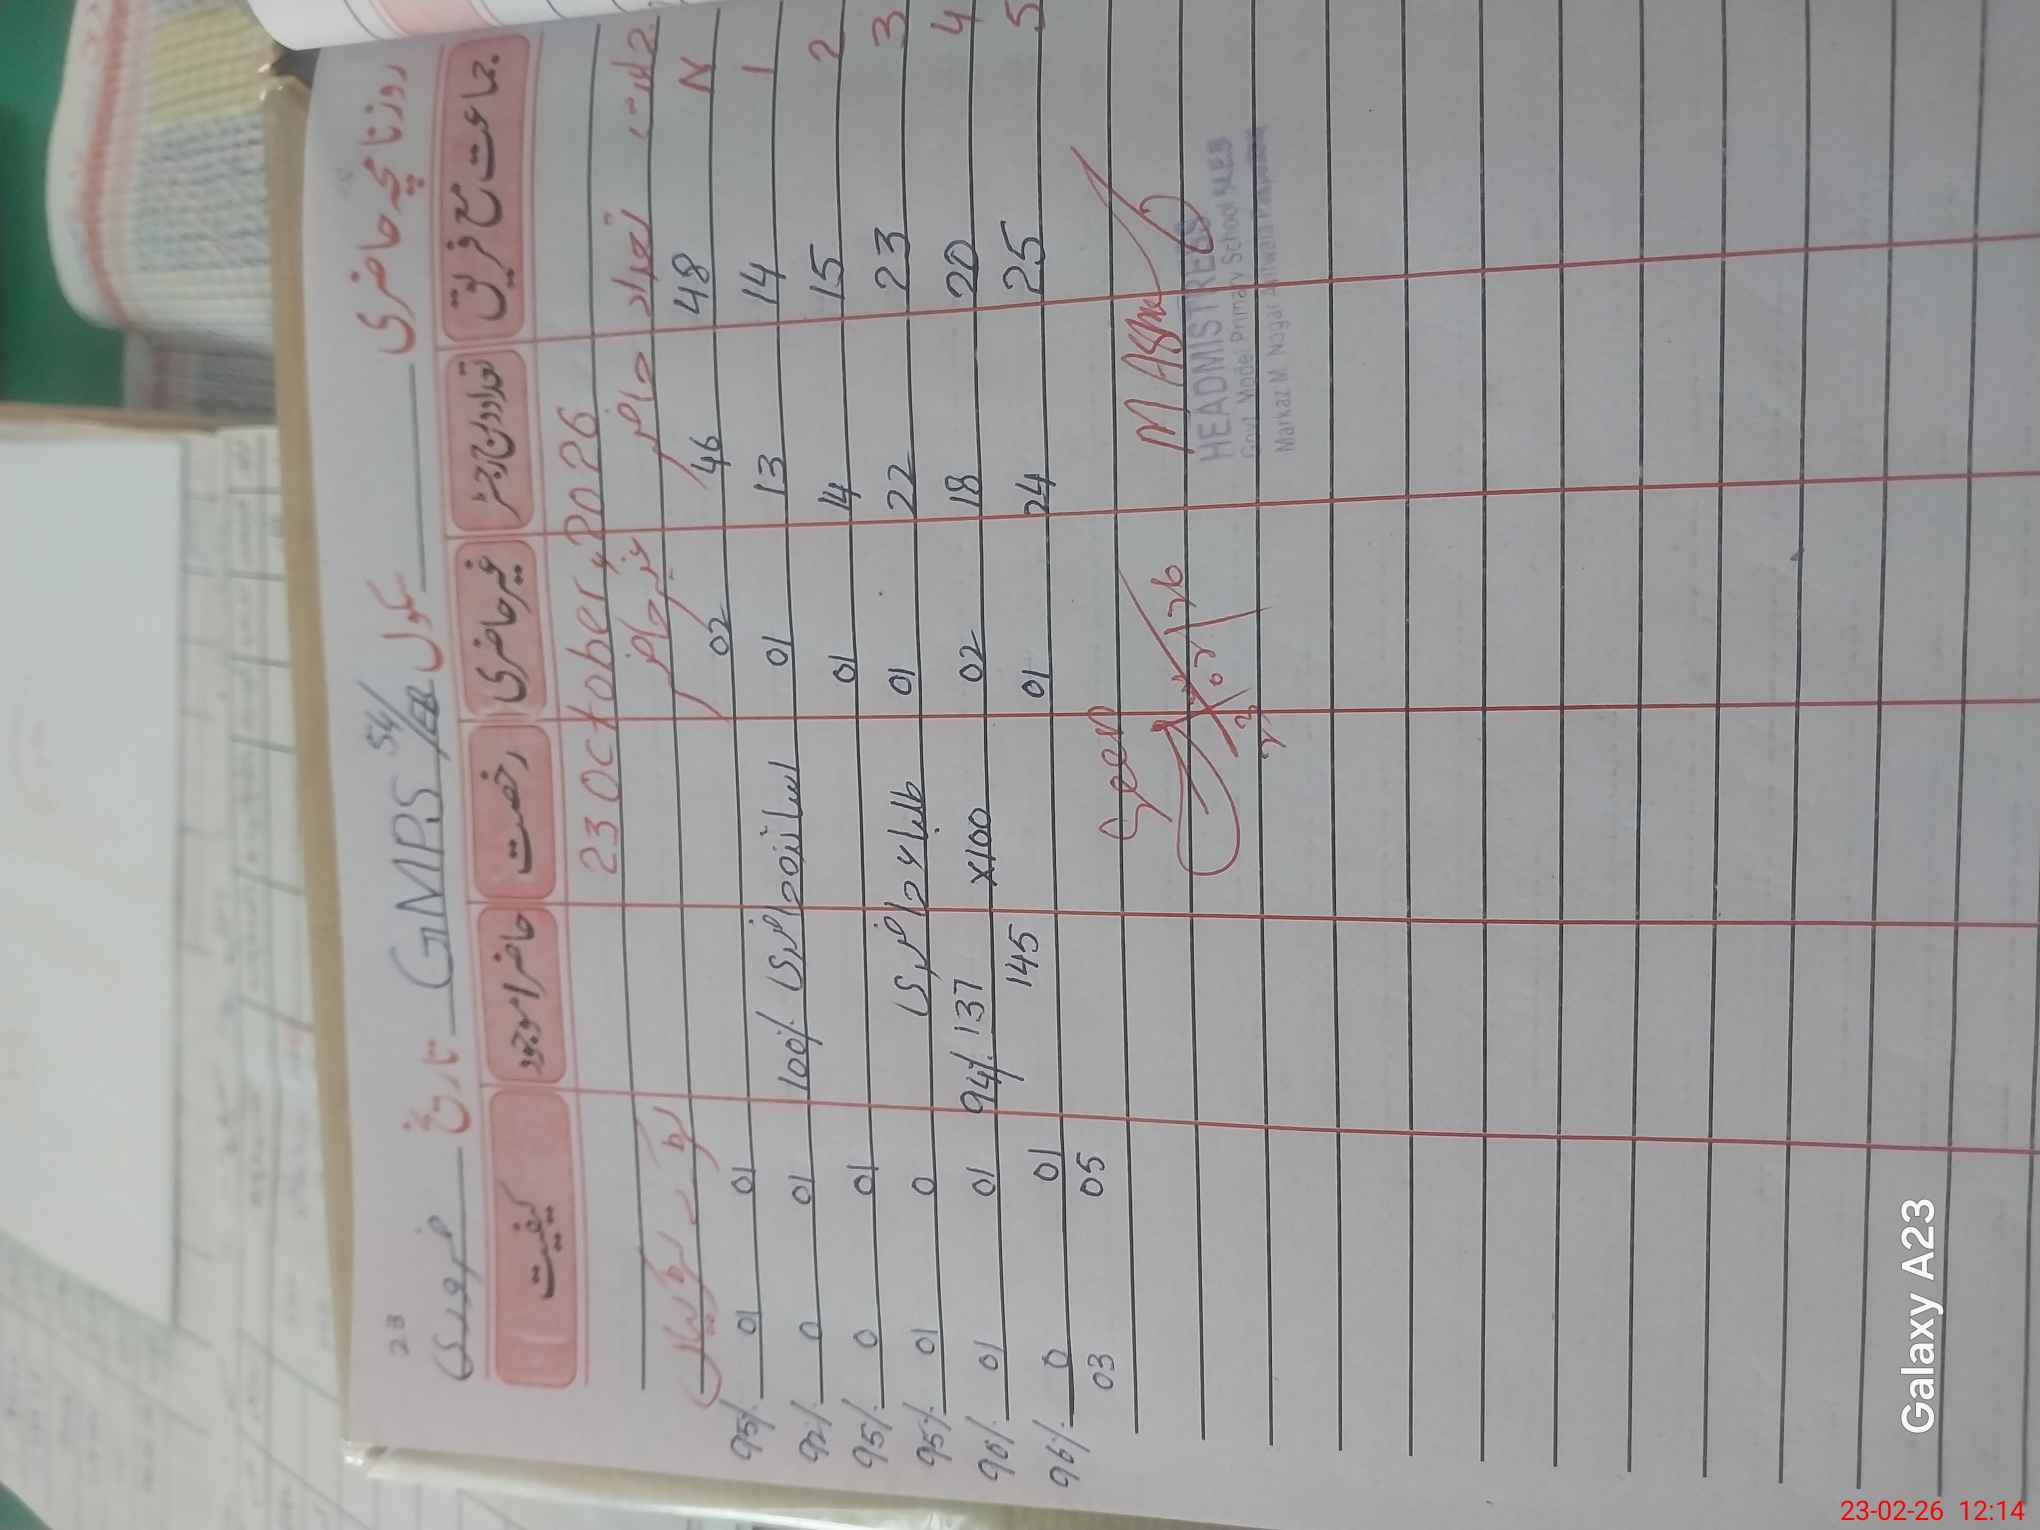 روزنامچہ حاضری سکول GMPS 54/EB تاریخ 23 فروری
جماعت مع فریق تعداد اندراج رجسٹر غیر حاضری رخصت حاضر / موجود کیفیت
23 October, 2026
تعداد حاضر غیر حاضر لڑکے لڑکیاں
N 48 46 02 01 01 95%
1 14 13 01 100% حاضری اساتذہ 01 0 92%
2 15 14 01 01 0 95%
3 23 22 01 حاضری طلباء 0 01 95%
4 20 18 02 94% 137 x100 01 01 90%
5 25 24 01 145 01 0 96%
05 03
Seen
23/02/26
HEADMISTRESS
Govt. Model Primary School 54 EB
Markaz M. Nagar
Galaxy A23
23-02-26 12:14